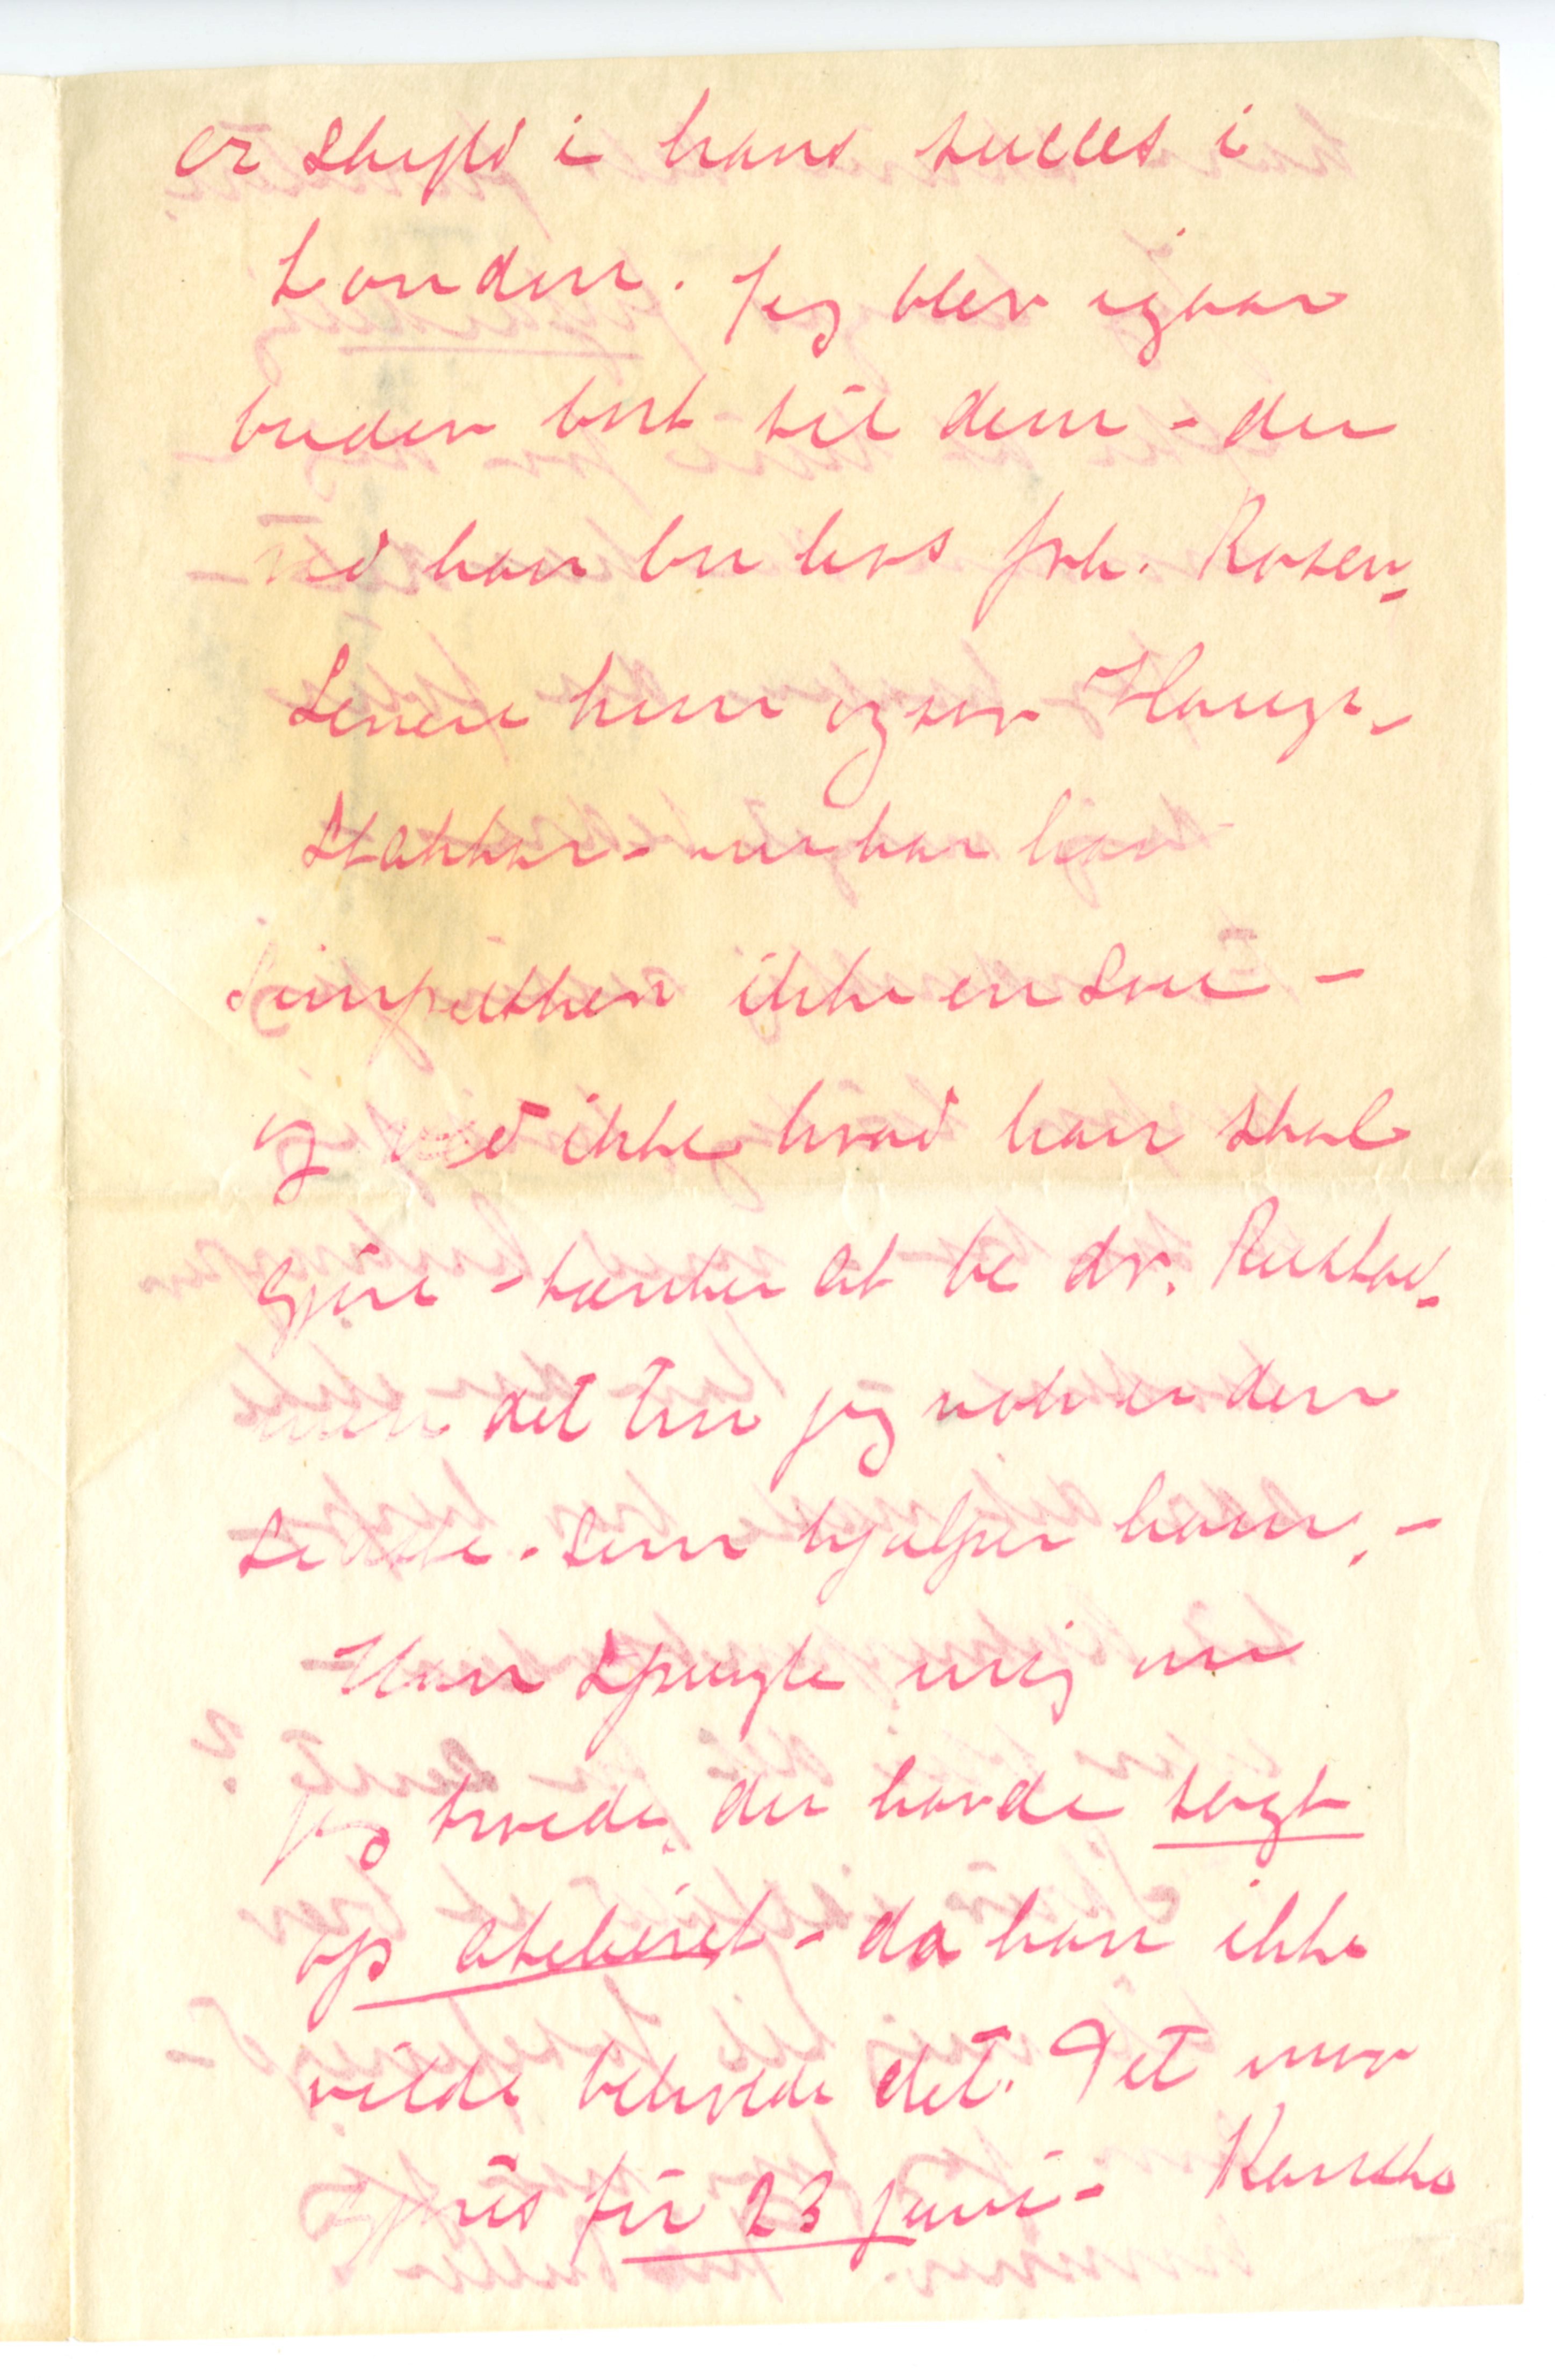 er skyld i hans succes i
London. Jeg blev igaar
buden bort til dem - du
ved han bor hos frk. Rosen-
Senere kom ogsaa Haugs.
Stakkar - han
simpelthen ikke en sou -
og ved ikke hvad han skal
gjøre - tænker at be dr. Rustad -
men det tror jeg nok er den
sidste - som hjælper ham. -
Han spurgte mig om
jeg trode, du havde sagt
op atelieret - da han ikke
vilde beholde det. Det maa
gjøres før 23 juni - Kanske